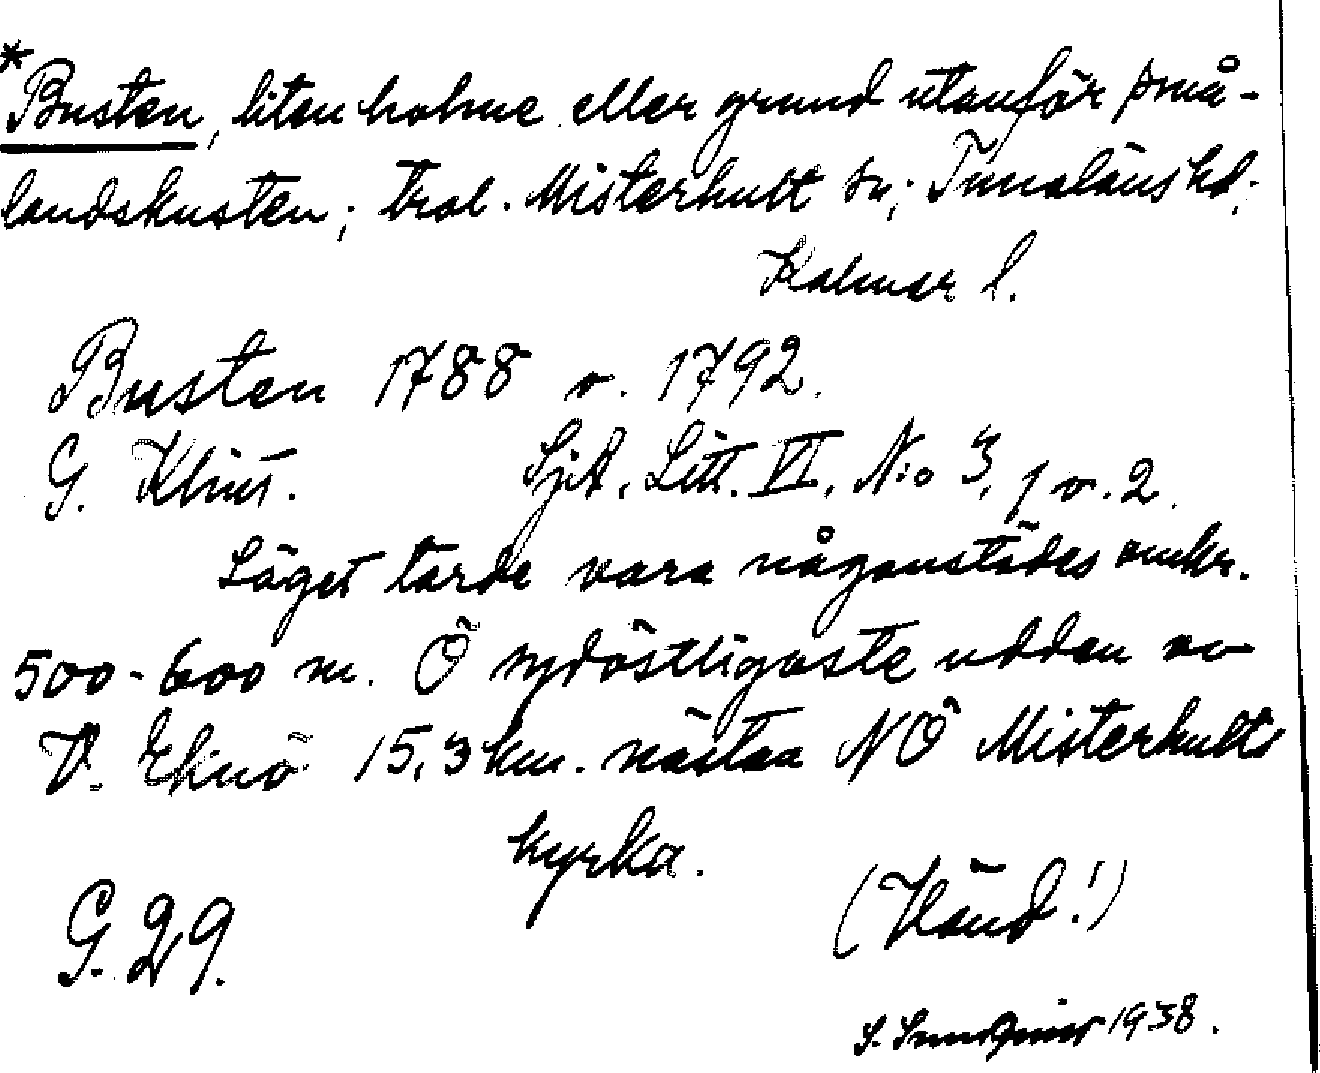 *Busten, liten holme eller grund utanför små-
landskusten; trol. Misterhult sn; Tunaläns hd.
Kalmar l.
Busten 1788 o. 1792.
G. Klint. SjA, Litt. VI, N:o 3, 1 o. 2.
Läget torde vara någonstädes omkr.
500-600 m. Ö sydöstligaste udden av
V. Eknö 15,3 km. nästan NÖ Misterhults
kyrka.
(Vänd!)
G. 29.
S. 1938.